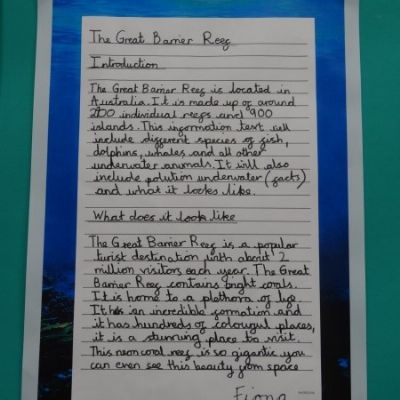 The Great Barrier Reef
Introduction
The Great Barrier Reef is located in
Australia. It is made up of around
2100 individual reefs and 900
islands. This information text will
include different species of fish,
dolphins, whales and all other
underwater animals. It will also
include polution underwater (facts)
and what it lookes like.
What does it look like
The Great Barrier Reef is a popular
turist destination with about 2
million visitors each year. The Great
Barrier Reef contains bright corals.
It is home to a plethora of life.
It has an incredible formation and
it has hundreds of colourful places,
it is a stunning place to visit.
This neon coral reef is so gigantic you
can even see this beauty from space
Fiona